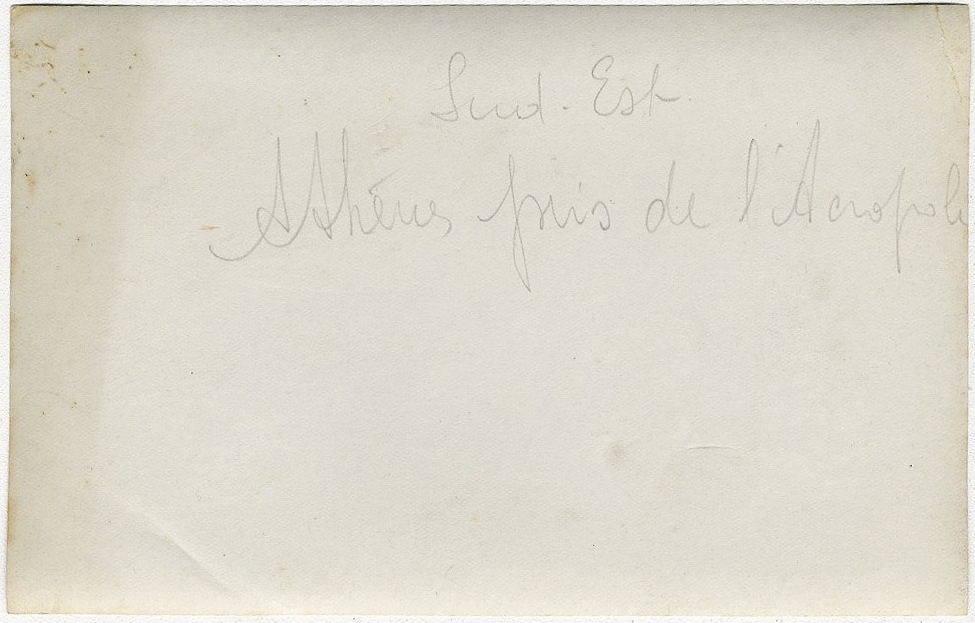 Sud-Est
Athènes pris de l'Acropole